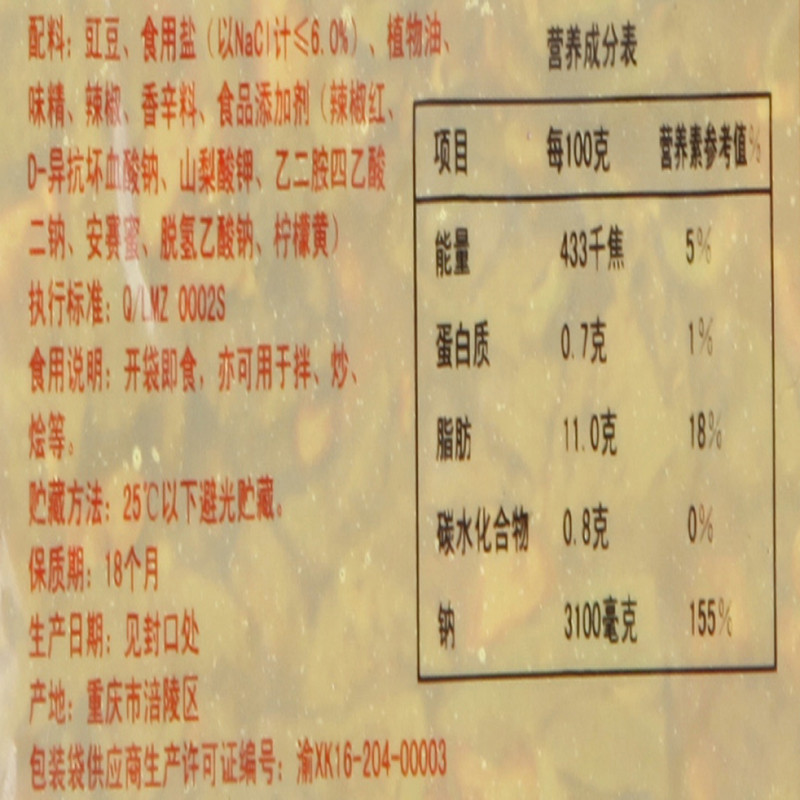 配料：豇豆、食用盐（以NaCl计≤6.0%）、植物油、
味精、辣椒、香辛料、食品添加剂（辣椒红、
D-异抗坏血酸钠、山梨酸钾、乙二胺四乙酸
二钠、安赛蜜、脱氢乙酸钠、柠檬黄）
执行标准：Q/LMZ 0002S
食用说明：开袋即食，亦可用于拌、炒、
烩等。
贮藏方法：25℃以下避光贮藏。
保质期：18个月
生产日期：见封口处
产地：重庆市涪陵区
包装袋供应商生产许可证编号：渝XK16-204-00003
营养成分表
项目 每100克 营养素参考值%
能量 433千焦 5%
蛋白质 0.7克 1%
脂肪 11.0克 18%
碳水化合物 0.8克 0%
钠 3100毫克 155%